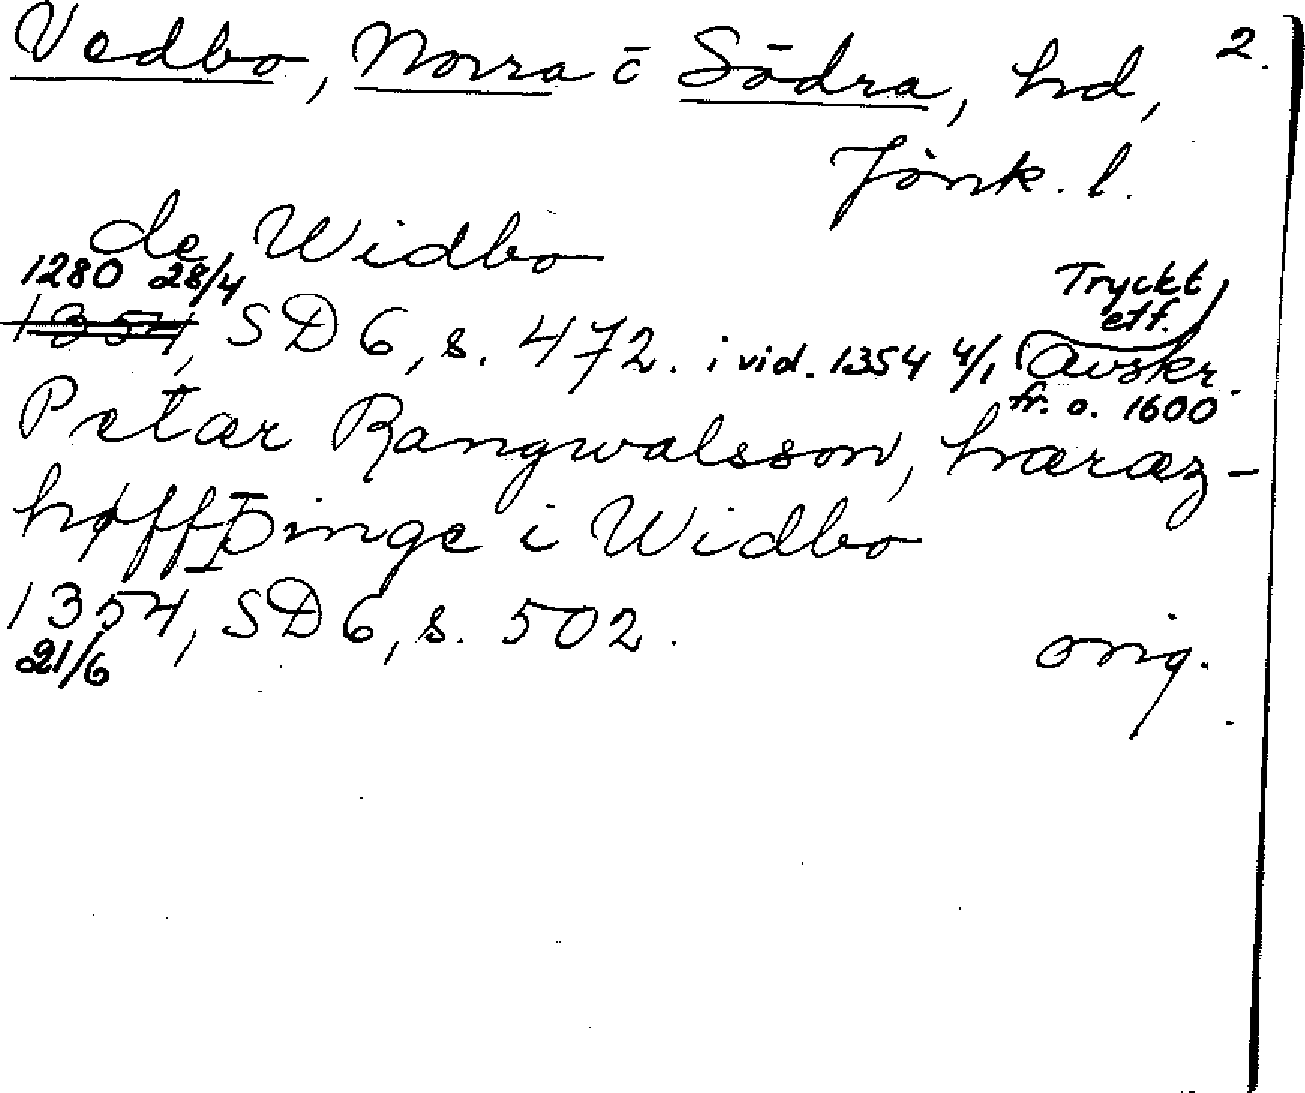 Vedbo, Norra o Södra, hd, 2.
Jönk. l.
de Widbo
1280 28/4 Tryckt
1354, SD 6, s. 472. i vid. 1354 4/1 eff. Avskr.
fr. o. 1600
Petær Rangwalsson, hæræz-
høffþinge i Widbo
1354, SD 6, s. 502.
21/6 orig.